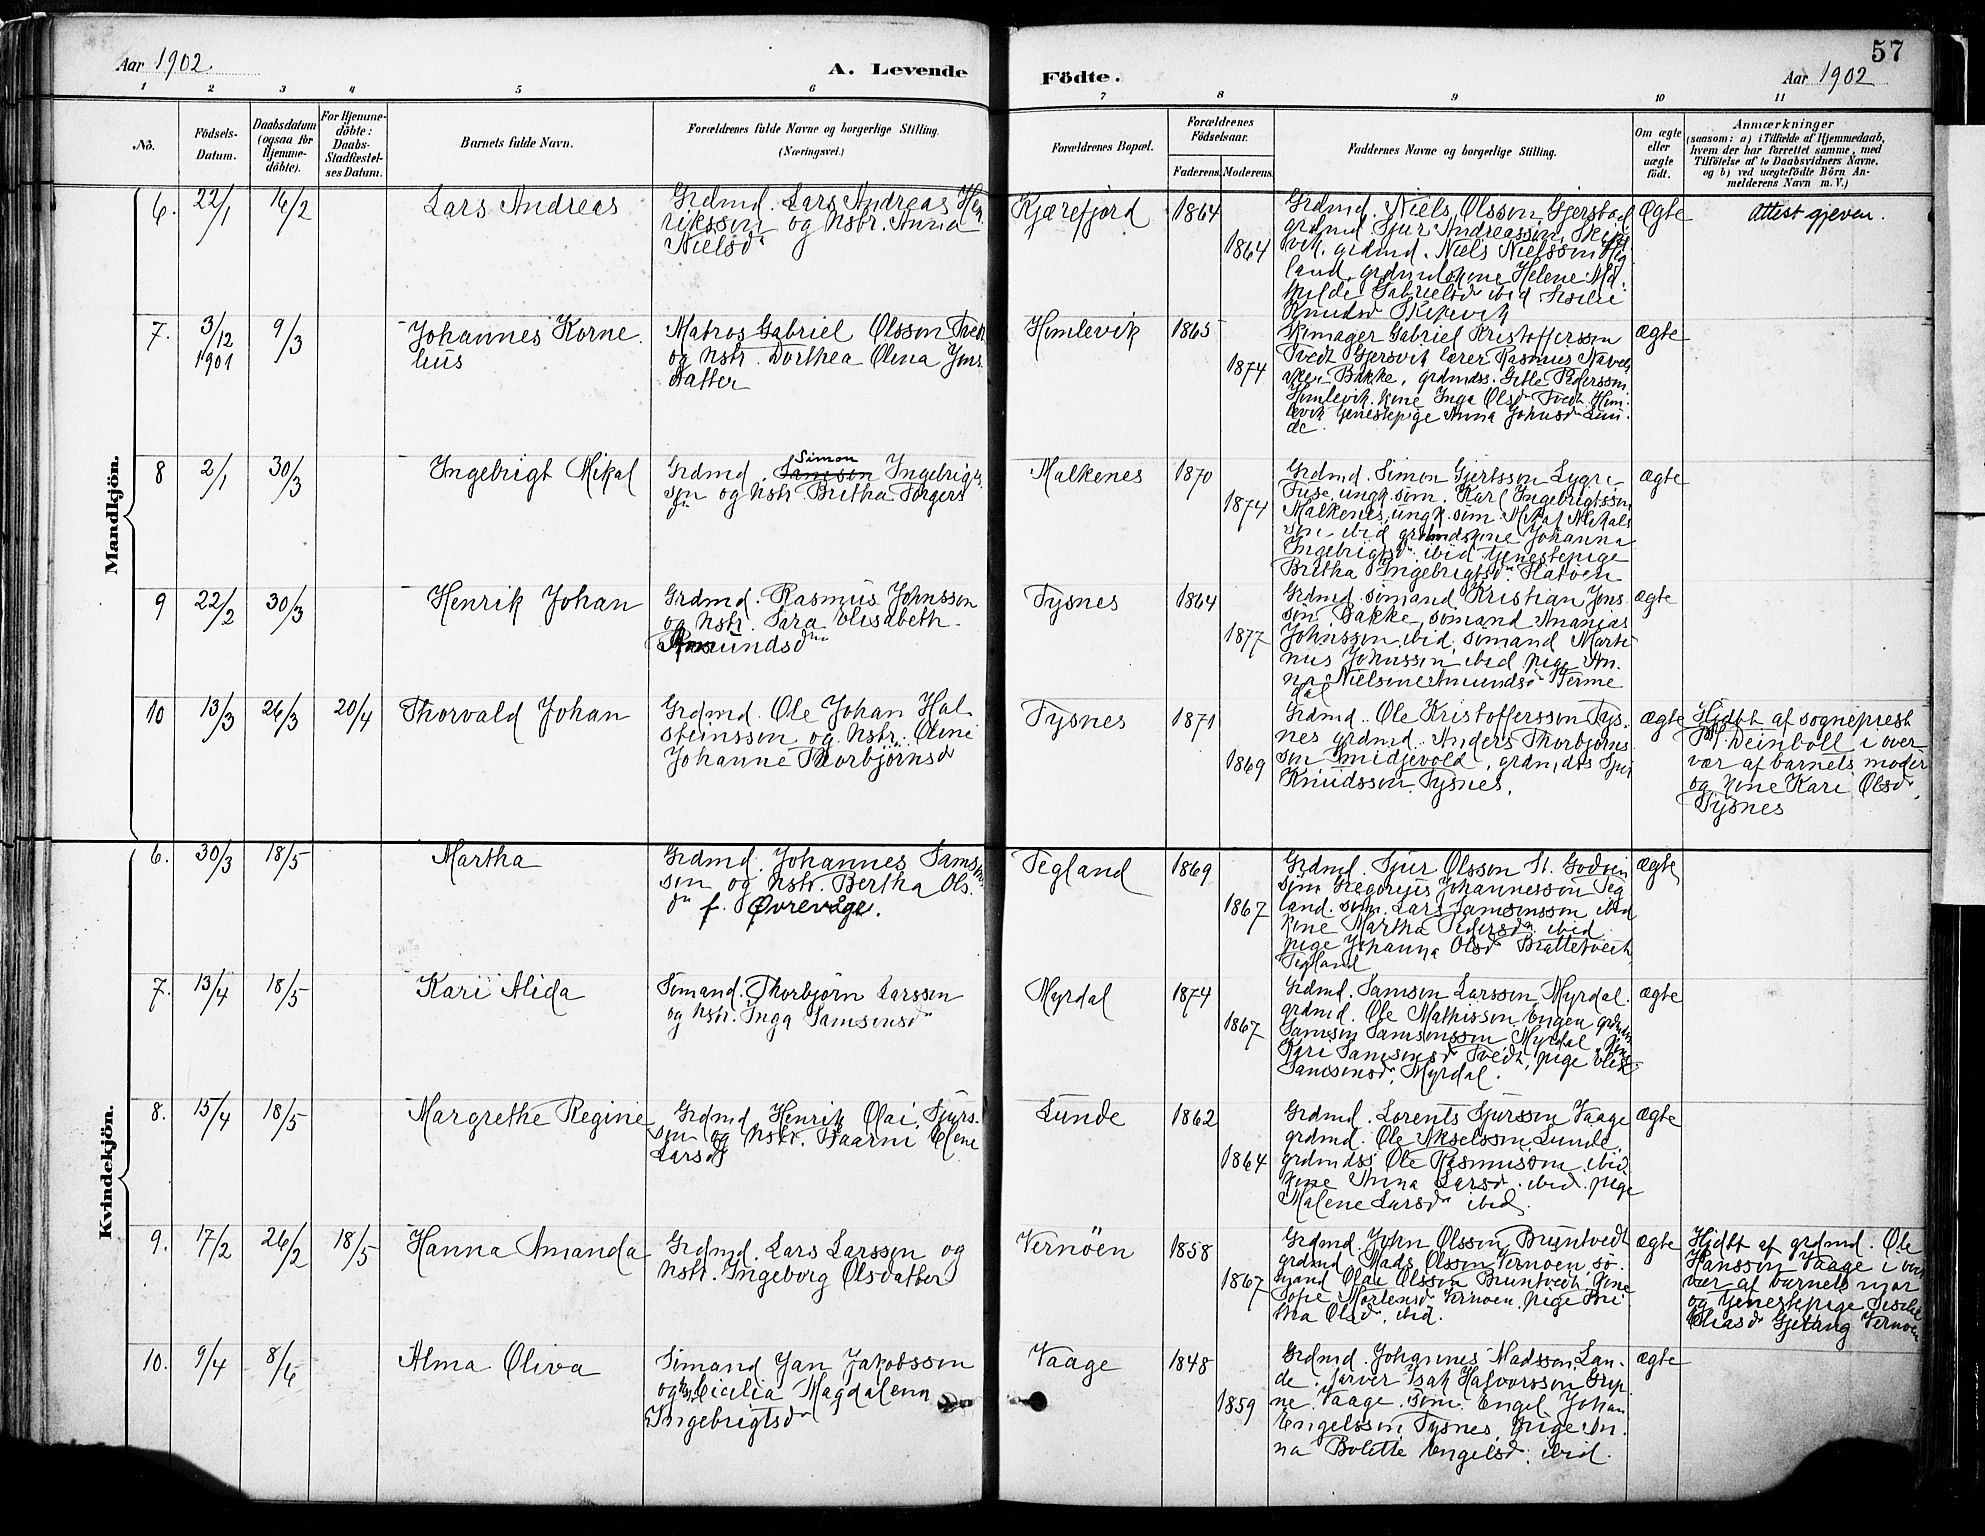 57
Aar 1902
A. Levende
Födte.
Aar 1902
1 2 3 4 5 6 7 8 9 10 11
No.
Födsels-Datum.
Daabsdatum (ogsaa for Hjemme-döbte).
For Hjemme-döbte: Daabs-Stadfæstel-ses Datum.
Barnets fulde Navn.
Forældrenes fulde Navne og borgerlige Stilling.
(Næringsvei.)
Forældrenes Bopæl.
Forældrenes Födselsaar.
Faderens. Moderens.
Faddernes Navne og borgerlige Stilling.
Om ægte eller uægte födt.
Anmærkninger
(saasom: a) i Tilfælde af Hjemmedaab,
hvem der har forrettet samme, med
Tilföielse af to Daabsvidners Navne,
og b) ved uægtefödte Börn An-
melderens Navn m. V.)
Mandkjön.
6. 22/1 16/2 Lars Andreas
Grdmd. Lars Andreas Hen
riksson og hstr. Anna
Nielsdr
Kjærefjord 1864 1864
Grdmd. Niels Olsson Gjerstad
grdmd Sjur Andreasson Skeie
vik. grdmd. Niels Nielsson
land. grdmdskone Helene Ma
thilde Gabrielsdr ibid
Knudsdr Skeievik
Ægte
Attest gjeven.
7. 3/12 1901 9/3 Johannes Korne
lius
Matros Gabriel Olsson Tvedt
og hstr. Dorthea Olina Jens
datter
Hemlevik 1865 1874
Skomager Gabriel Kristoffersson
Tvedt Gjersvik lærer Rasmus
Bakke, grdmdss. Pedersson
Hemlevik. kone Inga Olsdr Tvedt Hem-
levik tjenestepige Anna Johnsdr Lun-
de.
ægte
8 2/1 30/3 Ingebrigt Mikal
Grdmd. Simon Ingebrigts
søn og hstr Britha Torgers
dr
Malkenes 1870 1874
Grdmd. Simon Gjertsson Lygre
Tuse. ungk. søm. Karl Ingebrigtsson
Malkenes, ungk. søm Mikal Mikals
søn ibid grdmdskone Johanna
Ingebrigtsdr ibid tjenestepige
Britha Ingebrigtsdr. Flatøen
ægte
9 22/2 30/3 Henrik Johan
Grdmd. Rasmus Johnsson
og hstr. Sara Elisabeth
Amundsdr
Tysnes 1864 1877
Grdmd. sømand Kristian Jens
søn Bakke, sømand Ananias
Johnsson ibid, sømand Marti
nus Johnsson ibid pige An
na Nielsine Amundsdr Terne
dal
ægte
10 13/3 26/3 20/4 Thorvald Johan
Grdmd. Ole Johan Hal
steinsson og hstr. Oline
Johanne Thorbjørnsdr
Tysnes 1871 1869
Grdmd. Ole Kristoffersson Tys
nes grdmd. Anders Thorbjørns
søn Smidjevold, grdmdss Sjur
Knudsson Tysnes.
ægte
Hjdbt af sogneprest
Deinboll i over
vær af barnets moder
og kone Kari Olsdr,
Tysnes
Kvindekjön.
6. 30/3 18/5 Martha
Grdmd. Johannes Sams
søn og hstr. Bertha Ols
dr f. Øvrevåge.
Tegland 1869 1867
Grdmd. Sjur Olsson St. Godøen
søm Gregorius Johannesson Teg
land. søm. Lars Samsonsson ibid
kone Martha Pedersdr. ibid
pige Johanna Olsdr Brattetveit
Tegland
ægte
7. 13/4 18/5 Kari Alida
Sømand. Thorbjørn Larsson
og hstr. Inga Samsonsdr
Myrdal 1874 1867
Grdmd. Samson Larsson Myrdal.
grdmd. Ole Mathisson Engen
Samson Samsonsson Myrdal kone
Kari Samsonsdr Tvedt, pige
Samsonsdr, Myrdal.
ægte
8. 15/4 18/5 Margrethe Regine
Grdmd Henrik Olai Sjurs-
søn og hstr. Elene
Larsdr
Lunde 1862 1864
Grdmd. Lorents Sjursson Vaage
grdmd. Ole Akselsson Lunde
grdmdss Ole Rasmusson ibid
kone Anna Larsdr ibid. pige
Malene Larsdr ibid.
ægte
9. 17/2 26/2 18/5 Hanna Amanda
Grdmd. Lars Larsson og
hstr. Ingeborg Olsdatter
Vernøen 1858 1867
Grdmd John Olsson Bruntvedt
grdmd Mads Olsson Vernøen sø-
mand Olai Olsson Bruntvedt kone
Sofie Mortensdr Vernøen. pige Bri
tha Olsdr. ibid.
ægte
Hjdbt af grdmd. Ole
Hansson Vaage i over
vær af barnets mor
og tjenestepige
Eliasdr Gjetang Vernøen
10. 9/4 8/6 Alma Oliva
Sømand Jan Jakobsson
og hstr. Cicilia Magdalena
Ingebrigtsdr
Vaage 1848 1859
Grdmd. Johannes Madsson Lan-
de. farver Isak Halvorsson
Vaage. søm. Engel Johan
Engelsson Tysnes, pige An
na Bolette Engelsdr. ibid.
ægte